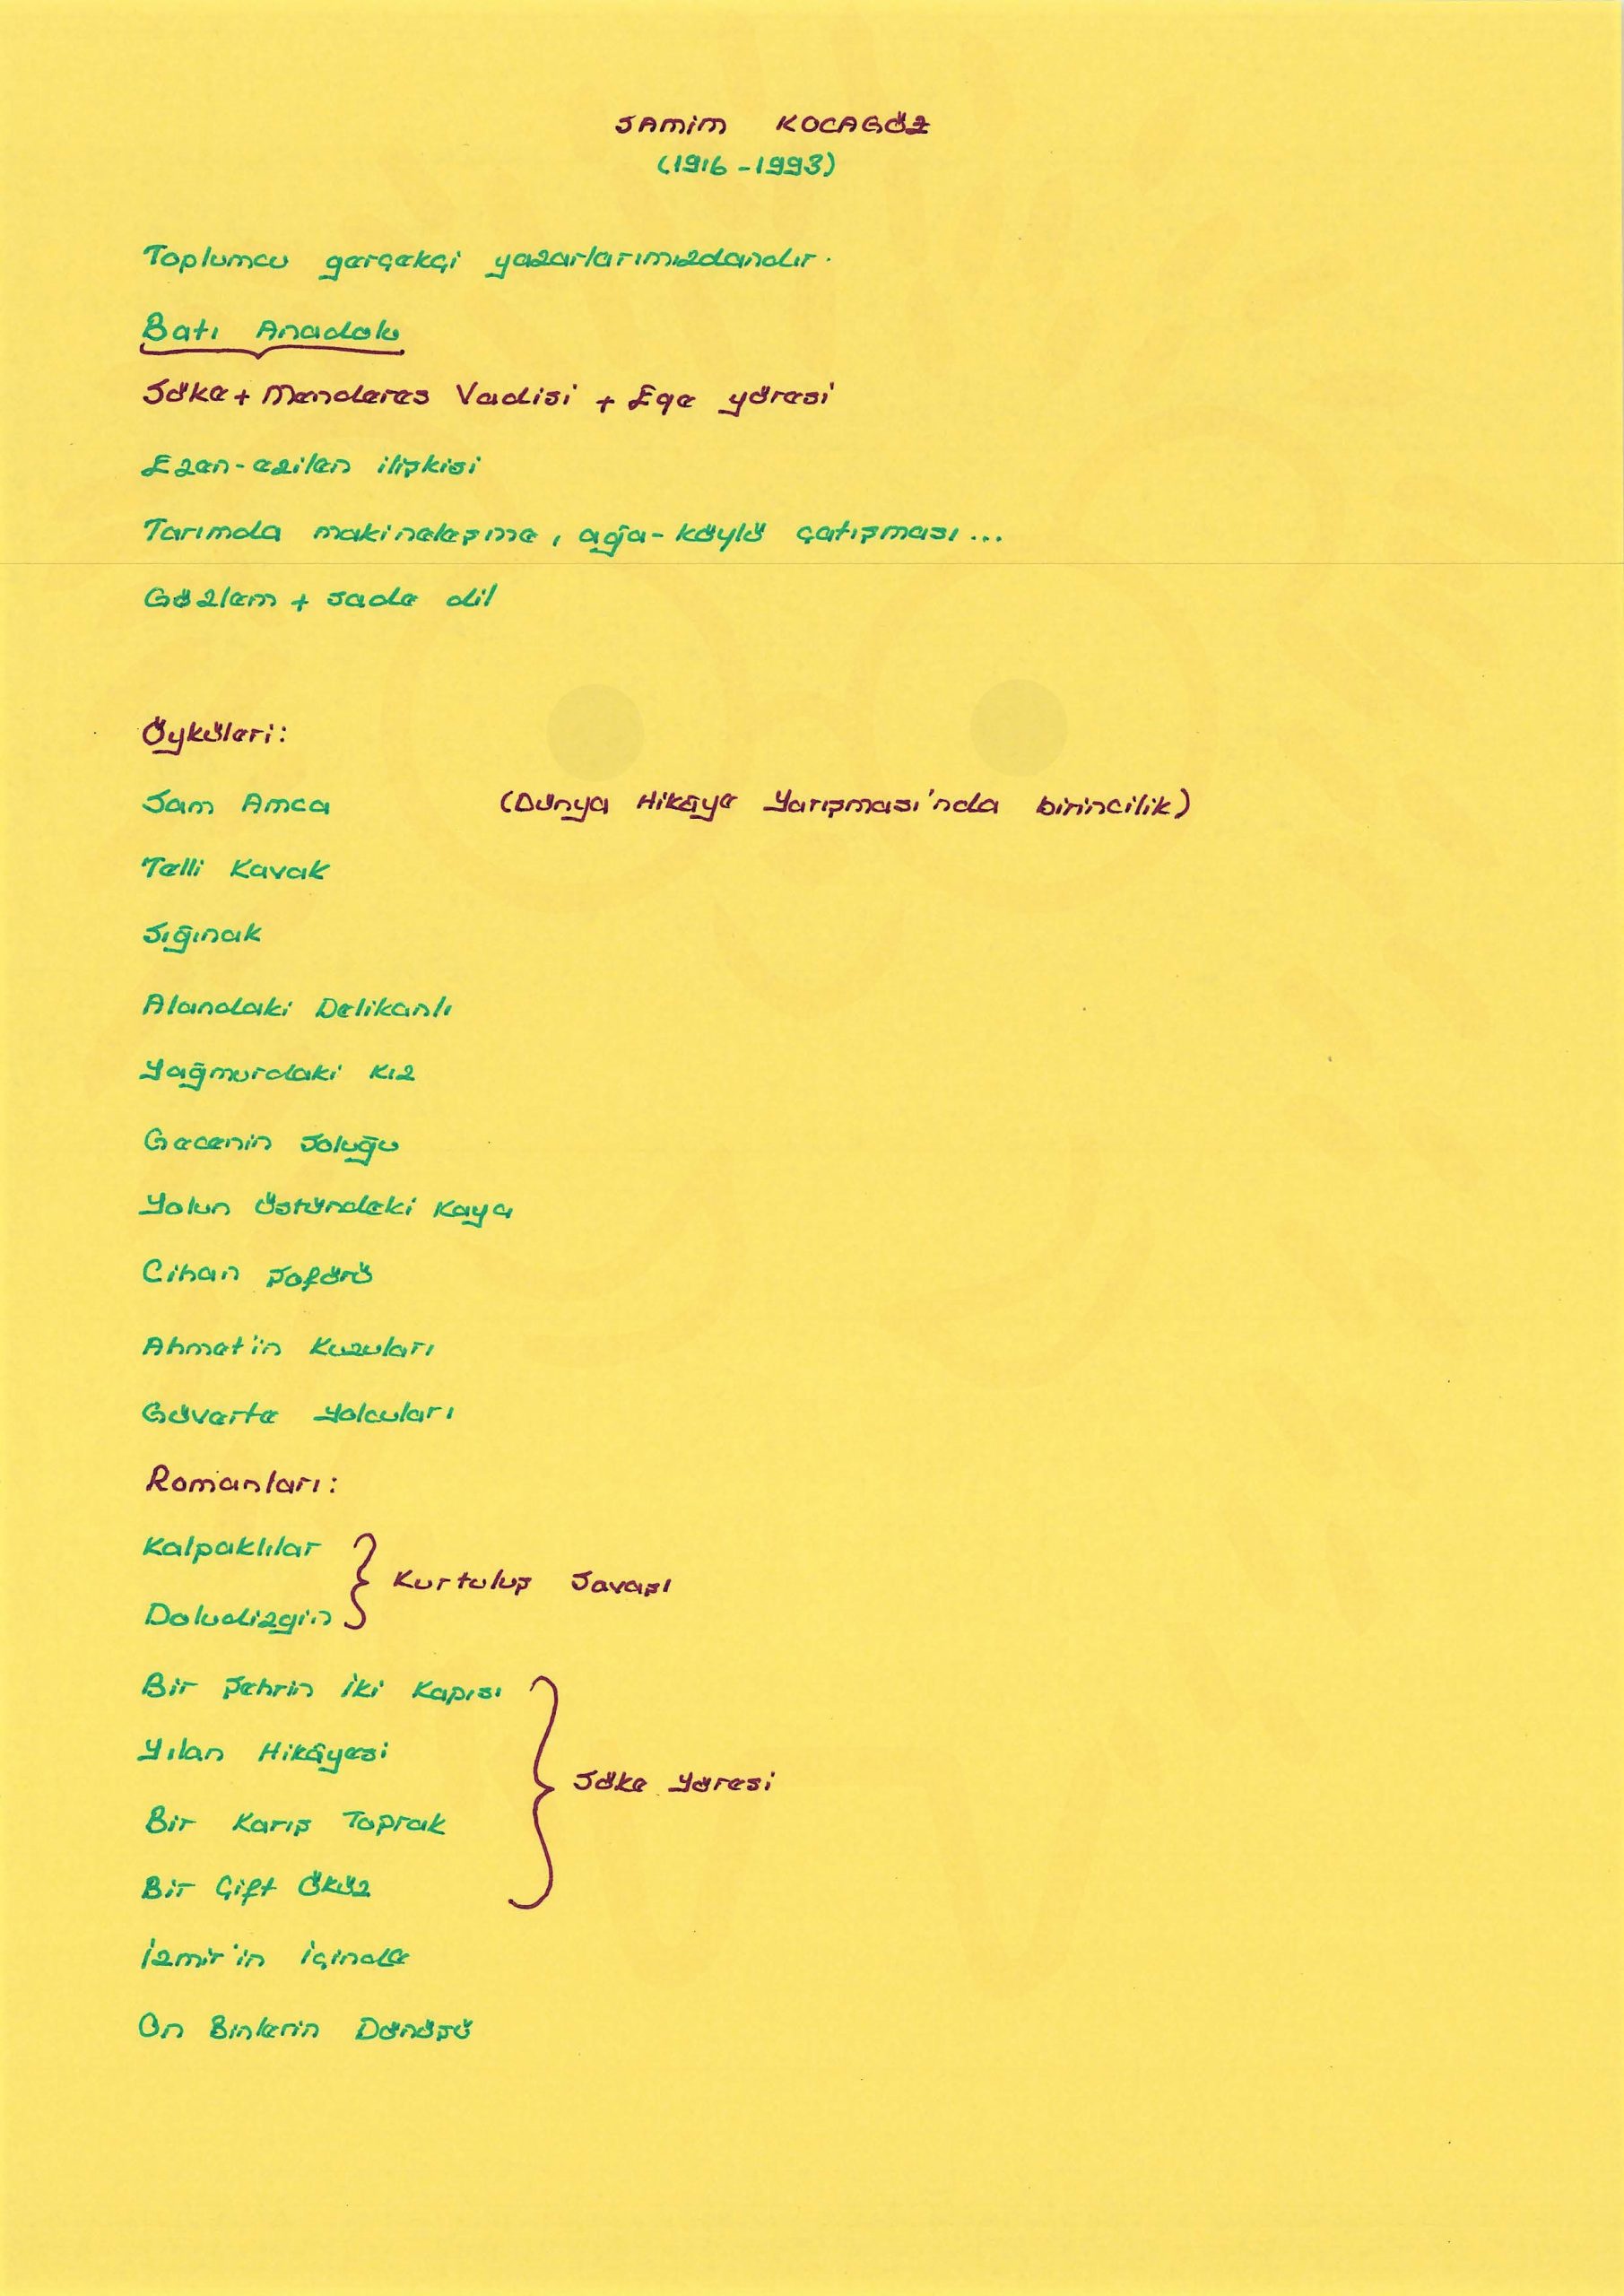 SAMİM KOCAGÖZ
(1916-1993)
Toplumcu gerçekçi yazarlarımızdandır.
Batı Anadolu
Söke + Menderes Vadisi + Ege yöresi
Ezen-ezilen ilişkisi
Tarımda makineleşme, ağa-köylü çatışması...
Gözlem + sade dil
Öyküleri:
Sam Amca (Dünya Hikâye Yarışması'nda birincilik)
Telli Kavak
Sığınak
Alandaki Delikanlı
Yağmurdaki Kız
Gecenin Soluğu
Yolun Üstündeki Kaya
Cihan Şoförü
Ahmet'in Kuzuları
Güverte Yolcuları
Romanları:
Kalpaklılar
Kurtuluş Savaşı
Doludizgin
Bir Şehrin İki Kapısı
Yılan Hikâyesi
Söke Yöresi
Bir Karış Toprak
Bir Çift Öküz
İzmir'in İçinde
On Binlerin Dönüşü